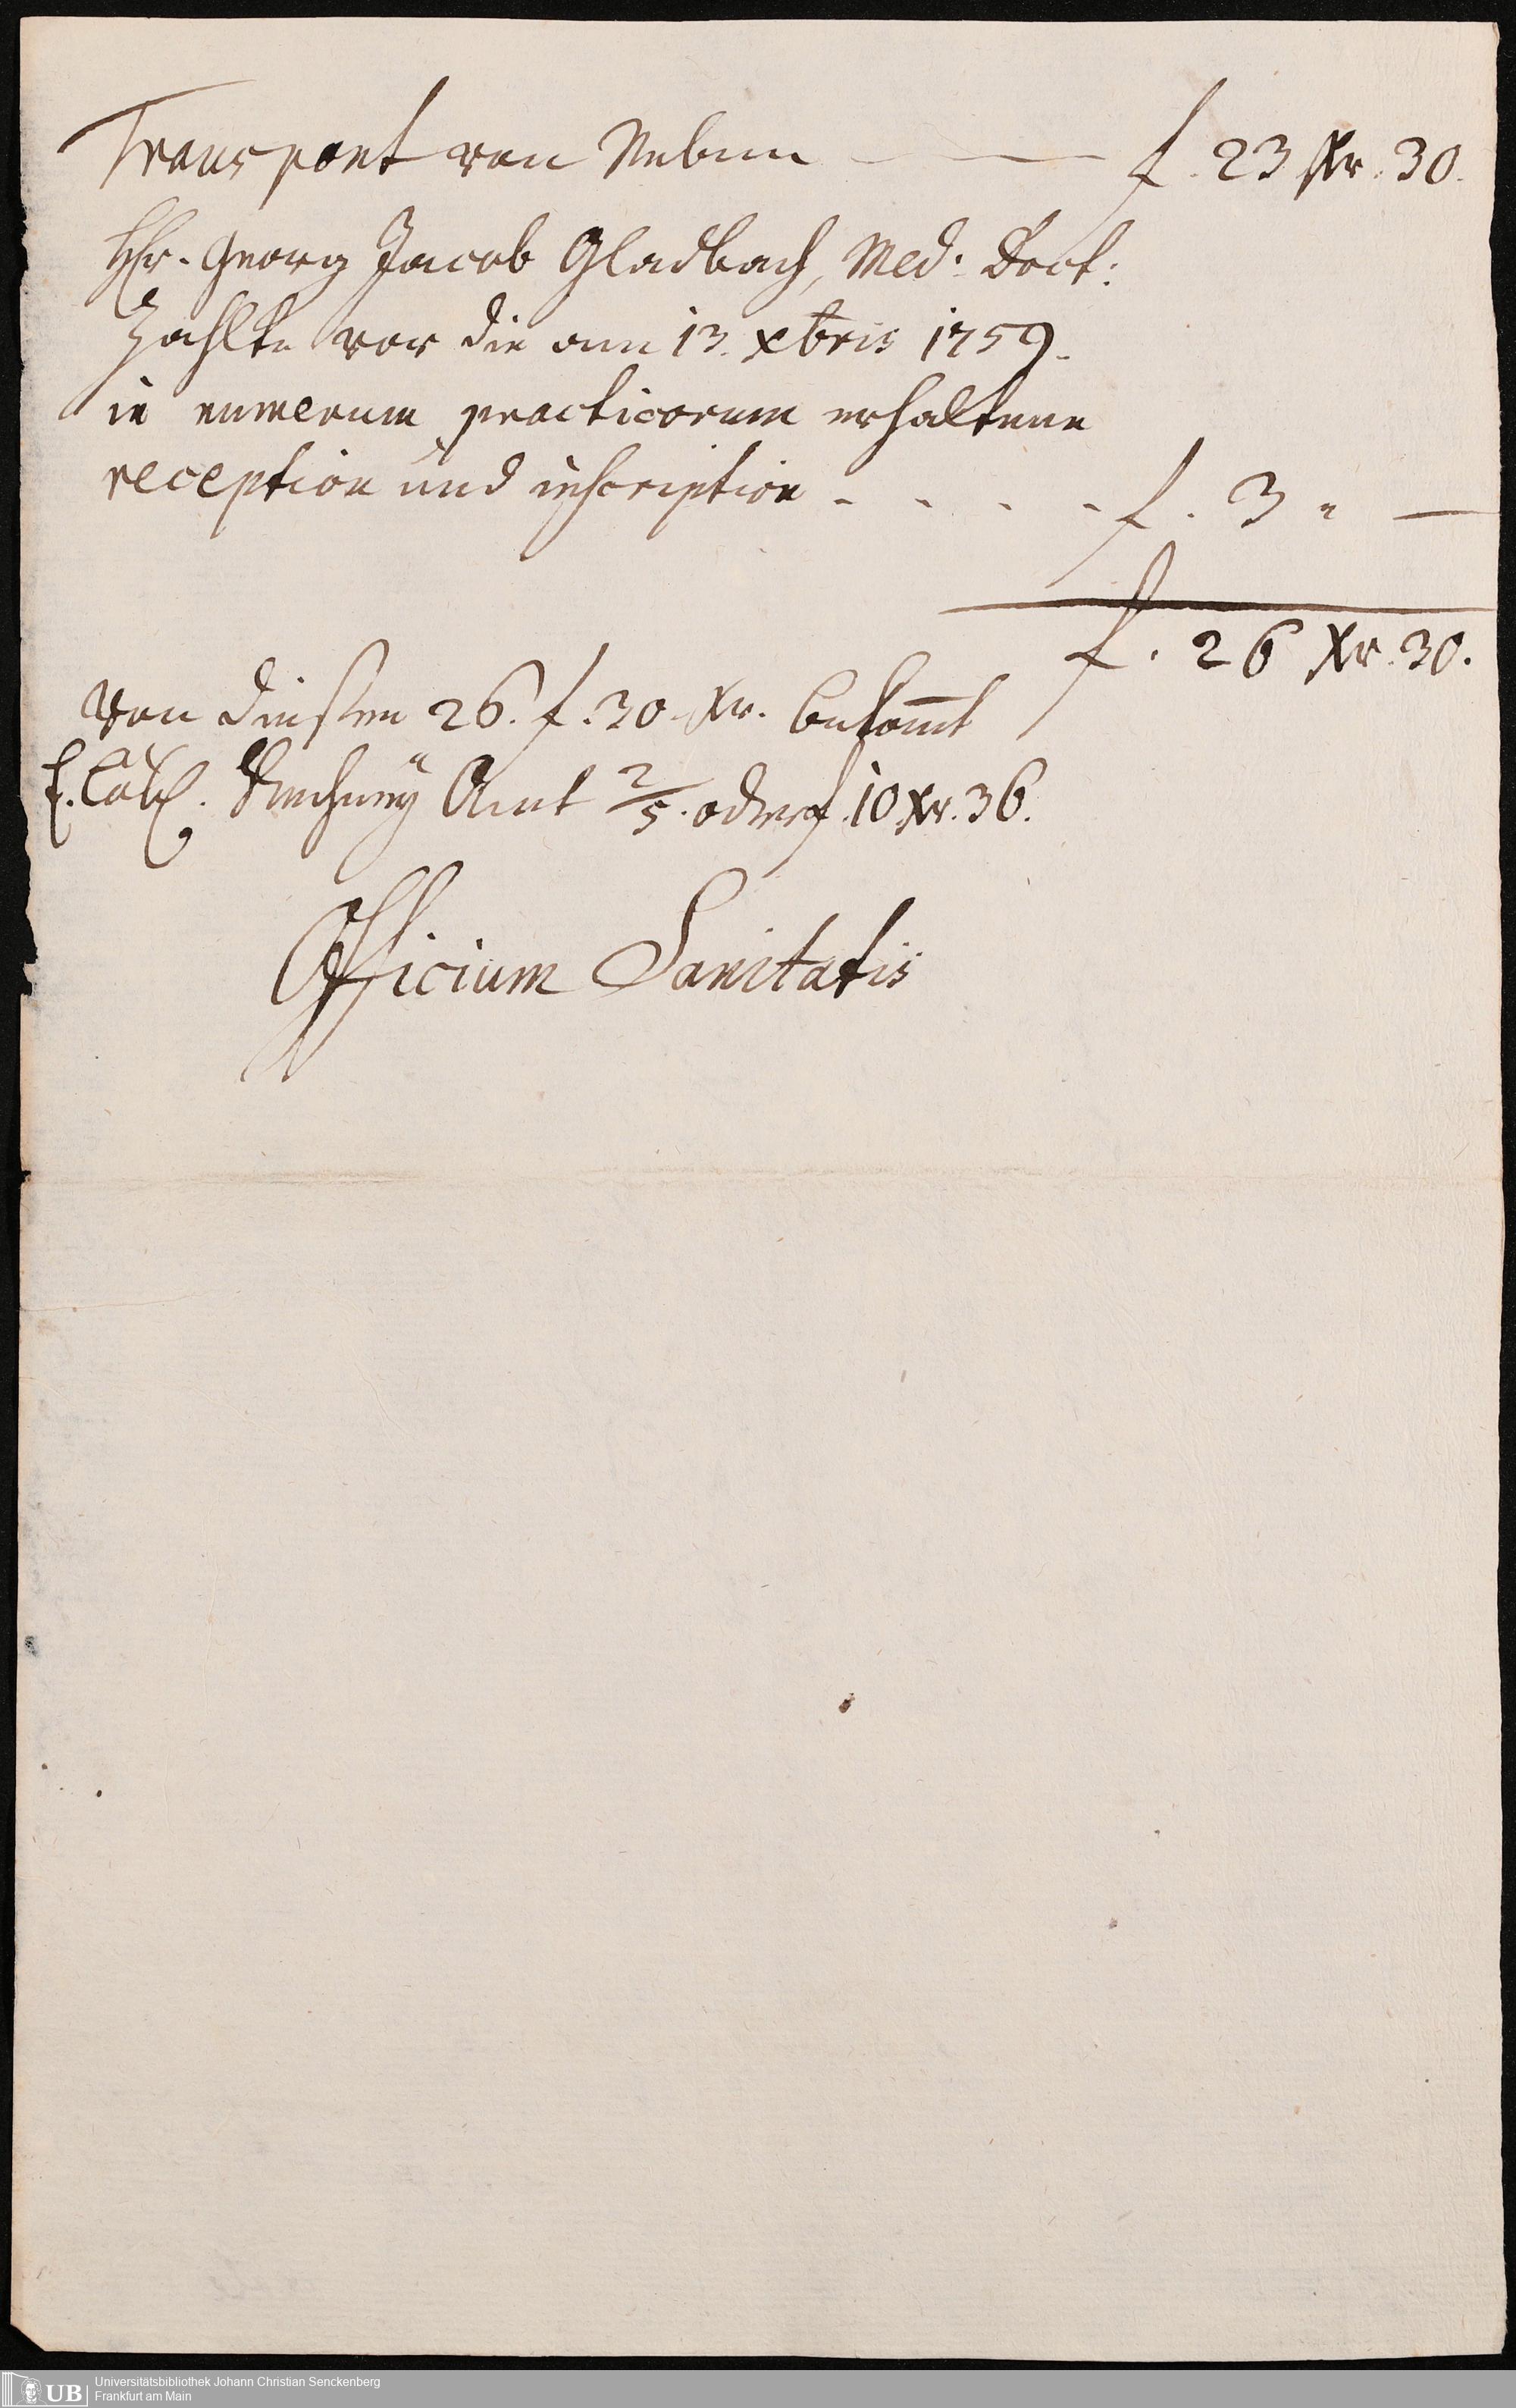 Transport von Neben — f. 23 Xr. 30.
Hr. Georg Jacob Gladbach, Med. Doct:
zahlte vor die am 13. Xbris 1759.
in numerum practicorum erhaltene
reception und inscription - - - - f. 3 " —
f. 26 Xr. 30.
von dießen 26. f. 30 Xr. bekomt
E. löbl. Rechney Amt 2/5. oder f. 10 Xr. 36.
Officium Sanitatis
UB Universitätsbibliothek Johann Christian Senckenberg
Frankfurt am Main